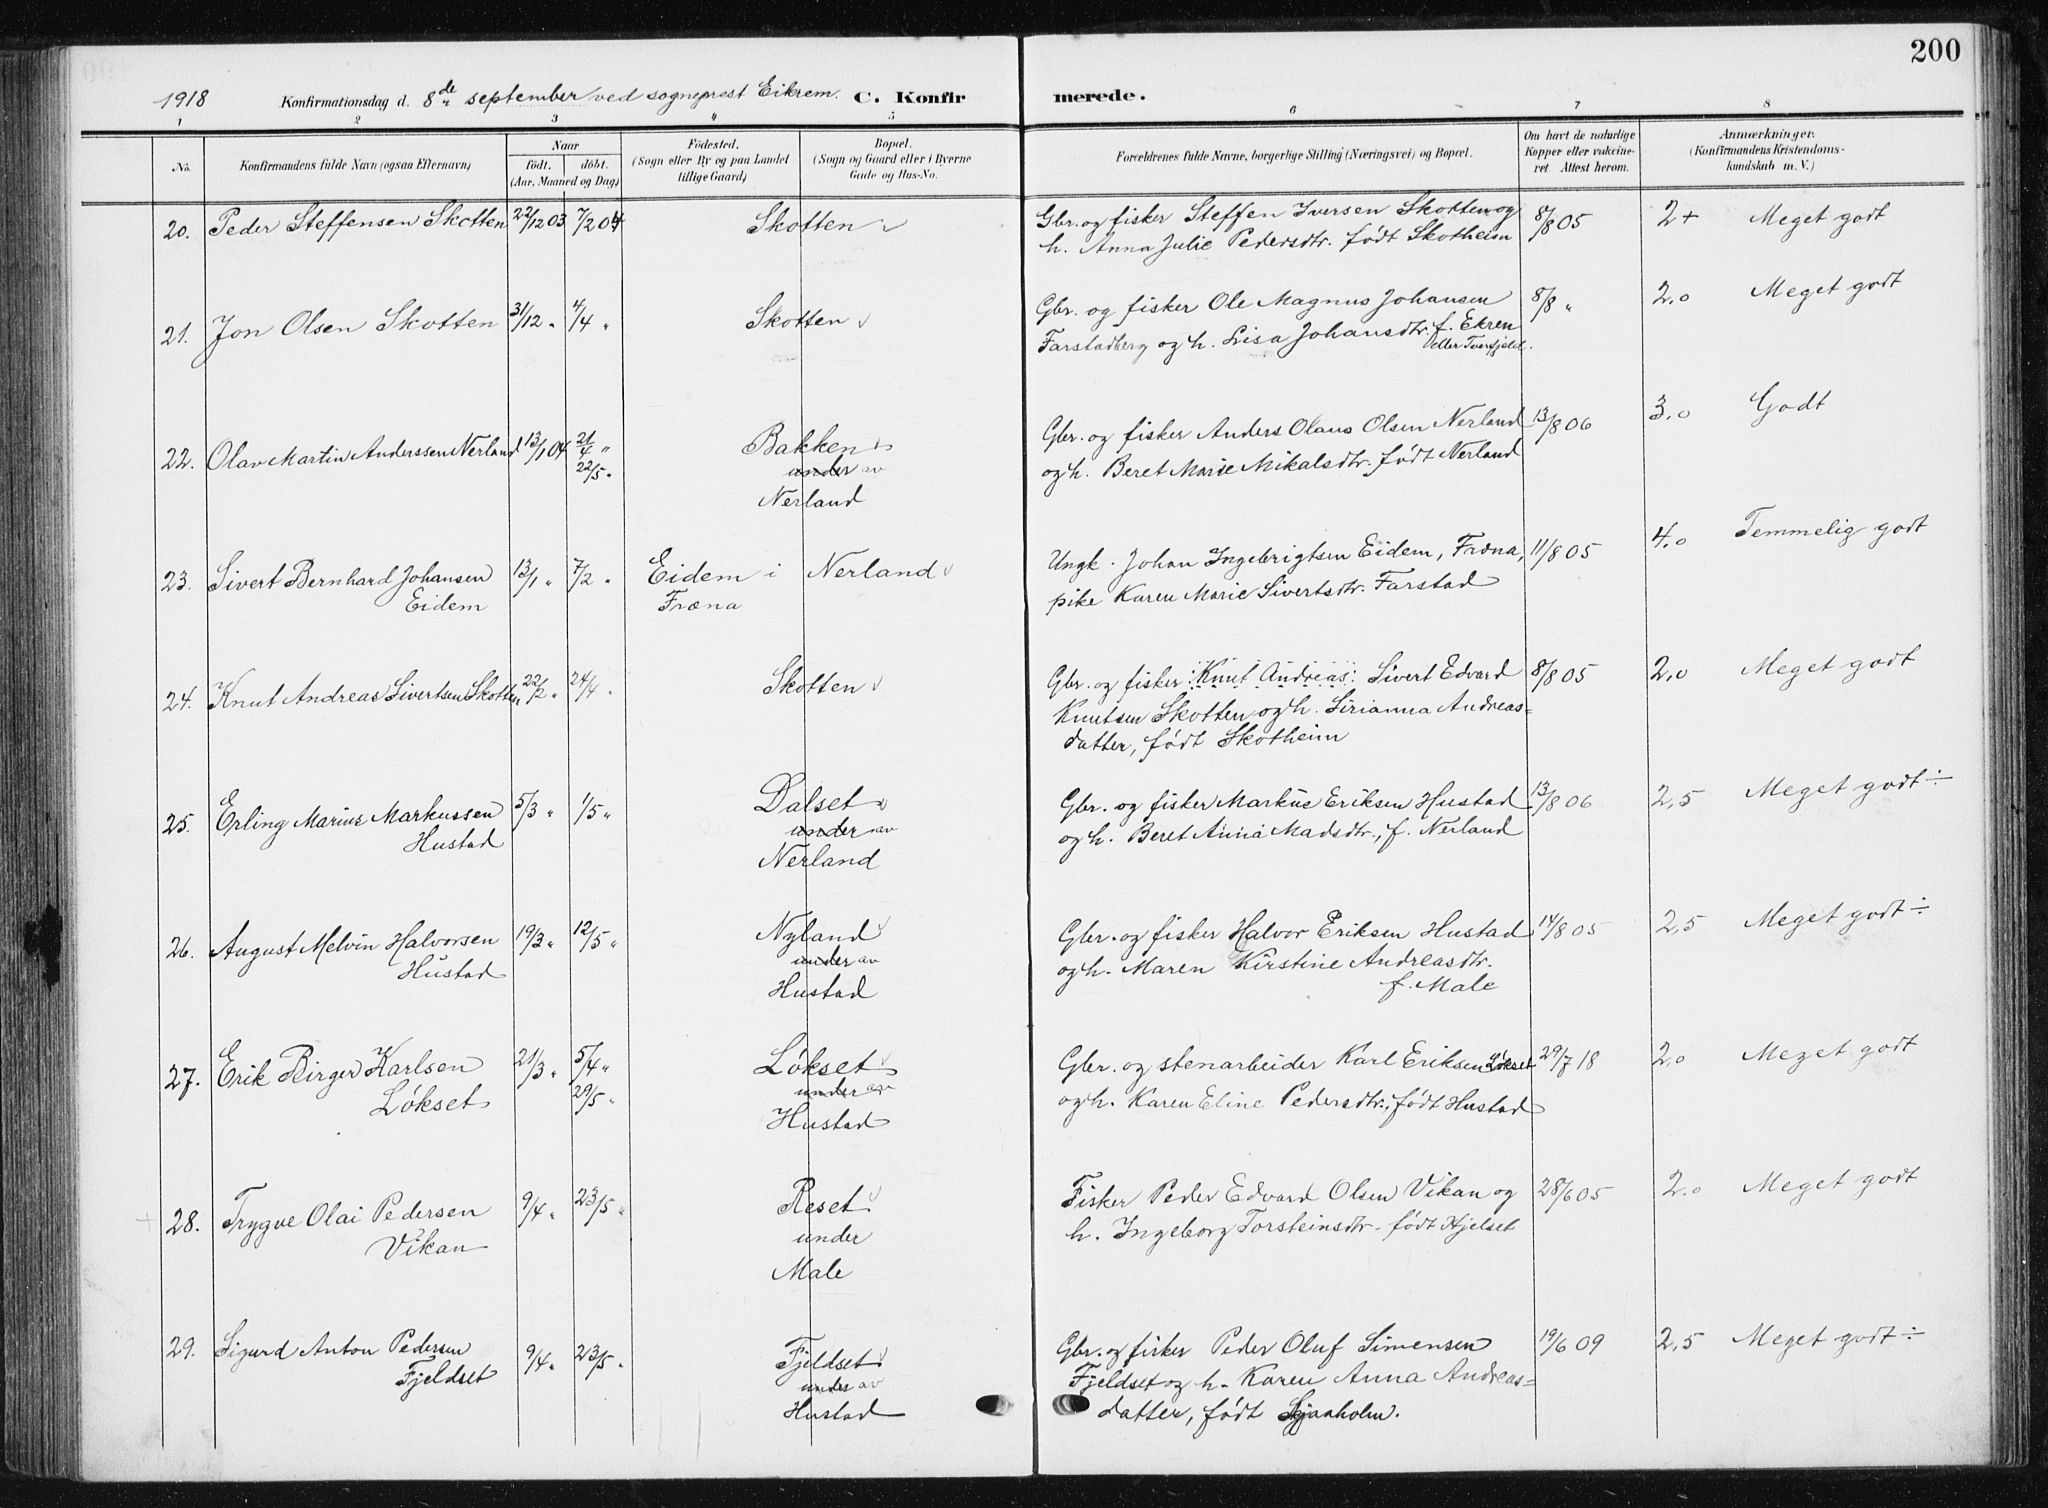 200
1918 Konfirmationsdag d. 8de september ved sogneprest Eikrem. C. Konfir merede.
1 2 3 4 5 6 7 8
No. Konfirmandens fulde Navn (ogsaa Efternavn) Naar født. døbt. (Aar, Maaned og Dag)
Fødested. (Sogn eller By og paa Landet tillige Gaard)
Bopæl. (Sogn og Gaard eller i Byerne Gade og Hus-No.
Forældrenes fulde Navne, borgerlige Stilling (Næringsvei) og Bopæl.
Om havt de naturlige Kopper eller vakcineret. Attest herom.
Anmærkninger. (Konfirmandens Kristendomskundskab m. V.)
20. Peder Steffensen Skotten 22/12 03 7/2 04 Skotten Gbr. og fisker Steffen Iversen Skotten og 8/8 05 2+ Meget godt
h. Anna Julie Pedersdtr. født Skotheim
21. Jon Olsen Skotten 31/12 " 4/4 " Skotten Gbr. og fisker Ole Magnus Johansen 8/8 " 2,0 Meget godt
Farstadberg og h. Lisa Johansdtr. f. Ekren
eller Tverfjeld.
22. Olav Martin Anderssen Nerland 13/1 04 21/4 " Bakken Gbr. og fisker Anders Olaus Olsen Nerland 13/8 06 3,0 Godt
22/5 " under av og h. Beret Marie Mikalsdtr. født Nerland
Nerland
23. Sivert Bernhard Johansen 13/1 " 7/2 " Eidem i Nerland Ungk. Johan Ingebrigtsen Eidem, Fræna, 11/8 05 4,0 Temmelig godt
Eidem Fræna pike Karen Marie Sivertsdtr. Farstad
24. Knut Andreas Sivertsen Skotten 22/2 " 24/4 " Skotten Gbr. og fisker Knut Andreas Sivert Edvard 8/8 05 2,0 Meget godt
Knutsen Skotten og h. Sirianna Andreas=
datter, født Skotheim
25. Erling Marius Markussen 5/3 " 1/5 " Dalset Gbr. og fisker Markus Eriksen Hustad 13/8 06 2,5 Meget godt ÷
Hustad under av og h. Beret Anna Madsdtr., f. Nerland
Nerland
26. August Melvin Halvorsen 19/3 " 12/5 " Nyland Gbr. og fisker Halvor Eriksen Hustad 14/8 05 2,5 Meget godt ÷
Hustad under av og h. Maren Kirstine Andreasdtr.
Hustad f. Male
27. Erik Birger Karlsen 21/3 " 5/4 " Løkset Gbr. og stenarbeider Karl Eriksen Løkset 29/7 18 2,0 Meget godt
Løkset 29/5 " under av og h. Karen Eline Pedersdtr., født Hustad
Hustad
28. Trygve Olai Pedersen 9/4 " 23/5 " Reset Fisker Peder Edvard Olsen Vikan og 28/6 05 2,0 Meget godt
Vikan under h. Ingeborg Torsteinsdtr. født Hjelset
Male
29. Sigurd Anton Pedersen 9/4 " 23/5 " Fjeldset Gbr. og fisker Peder Oluf Simensen 19/6 09 2,5 Meget godt ÷
Fjeldset under av Fjeldset og h. Karen Anna Andreas=
Hustad datter, født